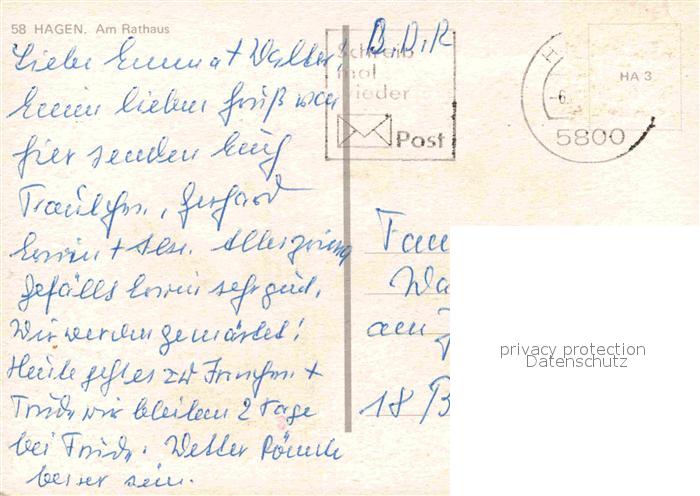 58 HAGEN. Am Rathaus
Liebe Emma + Walter!
Einen lieben Gruß von
hier senden Euch
Traudchen, Gerhard
Erwin + Ilse.
gefällt Erwin sehr gut.
Wir werden gemästet!
Heute geht es zu +
Trude wir bleiben 2 Tage
bei Trude. Wetter könnte
besser sein.
B.D.R
Schreib
mal
wieder
Post
5800
HA 3
-6.
Fam
Wa
am
18 B
privacy protection
Datenschutz